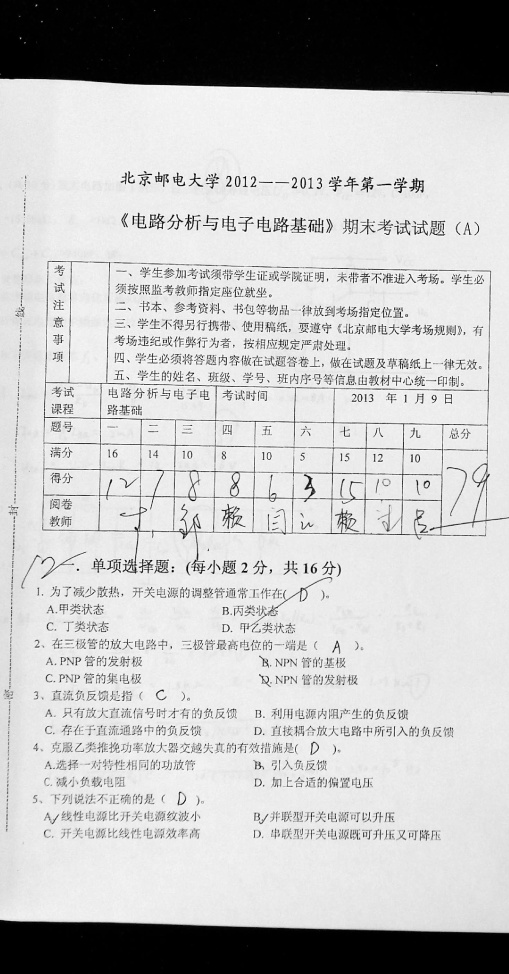 北京邮电大学 2012——2013 学年第一学期
《电路分析与电子电路基础》期末考试试题（A）
考试注意事项
一、学生参加考试须带学生证或学院证明，未带者不准进入考场。学生必
须按照监考教师指定座位就坐。
二、书本、参考资料、书包等物品一律放到考场指定位置。
三、学生不得另行携带、使用稿纸，要遵守《北京邮电大学考场规则》，有
考场违纪或作弊行为者，按相应规定严肃处理。
四、学生必须将答题内容做在试题答卷上，做在试题及草稿纸上一律无效。
五、学生的姓名、班级、学号、班内序号等信息由教材中心统一印制。
考试课程 电路分析与电子电路基础 考试时间 2013 年 1 月 9 日
题号 一 二 三 四 五 六 七 八 九 总分
满分 16 14 10 8 10 5 15 12 10
得分 12 7 8 8 6 3 15 10 10 79
阅卷教师
12 一．单项选择题：(每小题 2 分，共 16 分)
1. 为了减少散热，开关电源的调整管通常工作在( D )。
A.甲类状态 B.丙类状态
C. 丁类状态 D. 甲乙类状态
2、在三极管的放大电路中，三极管最高电位的一端是（ A ）。
A. PNP 管的发射极 B. NPN 管的基极
C. PNP 管的集电极 D. NPN 管的发射极
3、直流负反馈是指（ C ）。
A. 只有放大直流信号时才有的负反馈 B. 利用电源内阻产生的负反馈
C. 存在于直流通路中的负反馈 D. 直接耦合放大电路中所引入的负反馈
4、克服乙类推挽功率放大器交越失真的有效措施是( D )。
A.选择一对特性相同的功放管 B. 引入负反馈
C. 减小负载电阻 D. 加上合适的偏置电压
5、下列说法不正确的是（ D ）。
A. 线性电源比开关电源纹波小 B. 并联型开关电源可以升压
C. 开关电源比线性电源效率高 D. 串联型开关电源既可升压又可降压